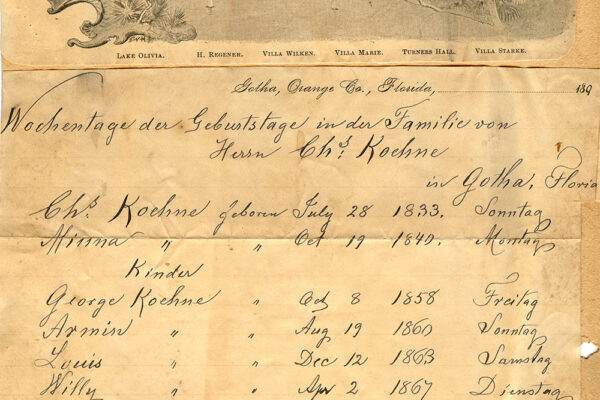 LAKE OLIVIA. H. REGENER. VILLA WILKEN. VILLA MARIE. TURNERS HALL. VILLA STARKE.
Gotha, Orange Co., Florida, 189
Wochentage der Geburtstage in der Familie von
Herrn Chs. Koehne
in Gotha, Florid
Chs. Koehne geboren July 28 1833. Sonntag
Minna " " Oct 19 1840. Montag
Kinder
George Koehne " Oct 8 1858 Freitag
Armin " " Aug 19 1860 Sonntag
Louis " " Dec 12 1863 Samstag
Willy " " Apr 2 1867 Dienstag